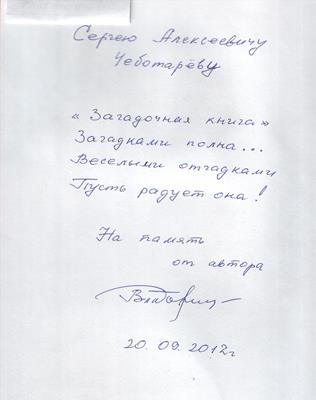 Сергею Алексеевичу
Чеботарёву
« Загадочная книга»
Загадками полна...
Веселыми отгадками
Пусть радует она!
На память
от автора
20.09.2012г